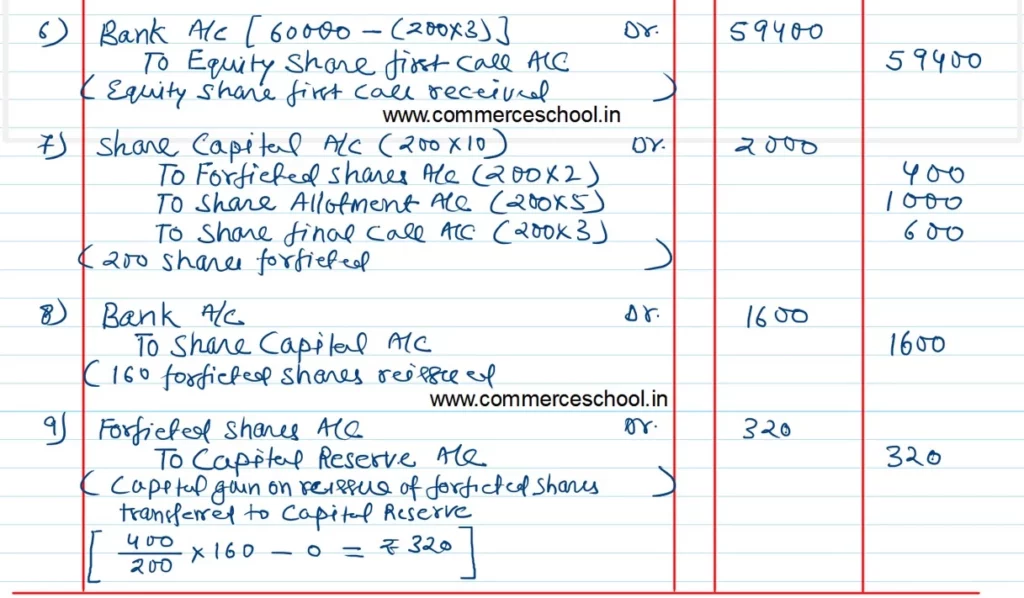 6) Bank A/c [60000 – (200×3)] Dr. 59400
To Equity Share first Call A/C 59400
(Equity share first call received)
www.commerceschool.in
7) Share Capital A/c (200×10) Dr. 2000
To Forficted shares A/c (200×2) 400
To Share Allotment A/c (200×5) 1000
To Share final Call A/C (200×3) 600
(200 shares forficted)
8) Bank A/c Dr. 1600
To Share Capital A/C 1600
(160 forficted shares reissued
www.commerceschool.in
9) Forficted shares A/C Dr. 320
To Capital Reserve A/c 320
(Capital gain on reissue of forficted shares)
transferred to Capital Reserve
[400/200 × 160 – 0 = ₹ 320]